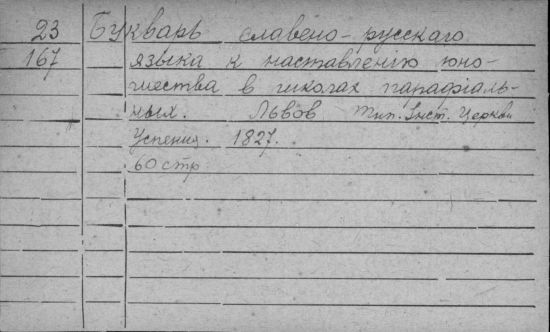 23 Букварь славено-русскаго
167 языка к наставленію юно-
шества в школах парафіаль-
ных. Львов Тип. Інст. Церкви
Успения. 1827.
60 стр.